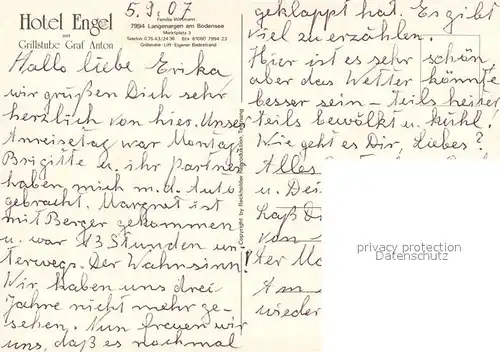 Hotel Engel
mit
Grillstube Graf Anton
5.9.07
Familie Wittmann
7994 Langenargen am Bodensee
Marktplatz 3
Grillstube · Lift · Eigener Badestrand
Hallo liebe Erika,
wir grüßen Dich sehr
herzlich von hier. Unser
Anreisetag war Montag
Brigitte u. ihr Partner
haben mich m. d. Auto
gebracht. Margret ist
mit Berger gekommen
u. war 13 Stunden un-
terwegs. Der Wahnsinn!
Wir haben uns drei
Jahre nicht mehr ge-
sehen. Nun freuen wir
uns, daß es nochmal
geklappt hat. Es gibt
viel zu erzählen.
Hier ist es sehr schön
aber das Wetter könnte
besser sein – teils heiter
teils bewölkt u. kühl.
Wie geht es Dir, Liebes?
Alles
u. Dei
von
ter Ma
Am
wieder
privacy protection
www.oldthing.de